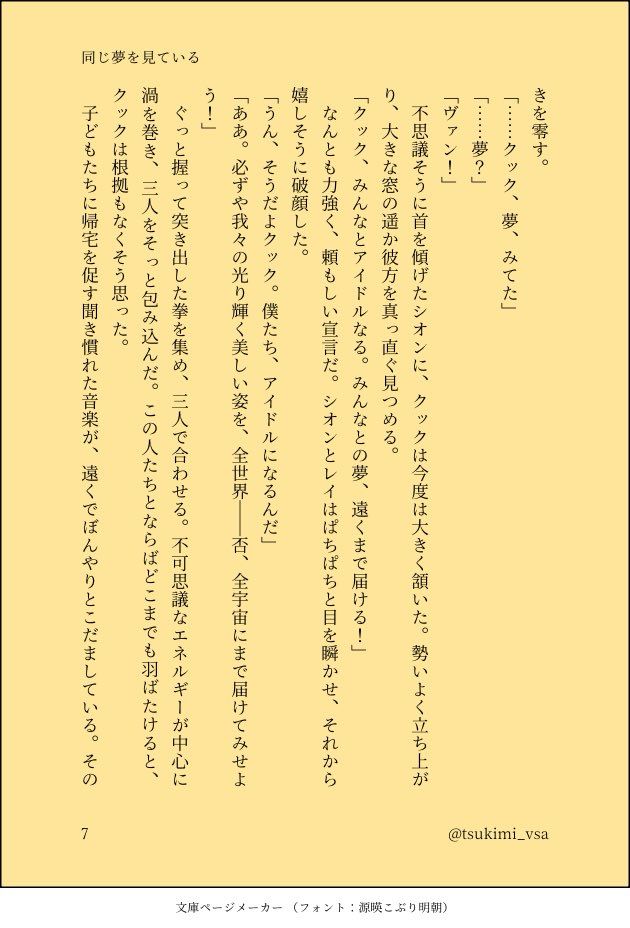 同じ夢を見ている
きを零す。
「……クック、夢、みてた」
「……夢？」
「ヴァン！」
　不思議そうに首を傾げたシオンに、クックは今度は大きく頷いた。勢いよく立ち上が
り、大きな窓の遥か彼方を真っ直ぐ見つめる。
「クック、みんなとアイドルなる。みんなとの夢、遠くまで届ける！」
　なんとも力強く、頼もしい宣言だ。シオンとレイはぱちぱちと目を瞬かせ、それから
嬉しそうに破顔した。
「うん、そうだよクック。僕たち、アイドルになるんだ」
「ああ。必ずや我々の光り輝く美しい姿を、全世界――否、全宇宙にまで届けてみせよ
う！」
　ぐっと握って突き出した拳を集め、三人で合わせる。不可思議なエネルギーが中心に
渦を巻き、三人をそっと包み込んだ。この人たちとならばどこまでも羽ばたけると、
クックは根拠もなくそう思った。
　子どもたちに帰宅を促す聞き慣れた音楽が、遠くでぼんやりとこだましている。その
7
@tsukimi_vsa
文庫ページメーカー （フォント：源暎こぶり明朝）